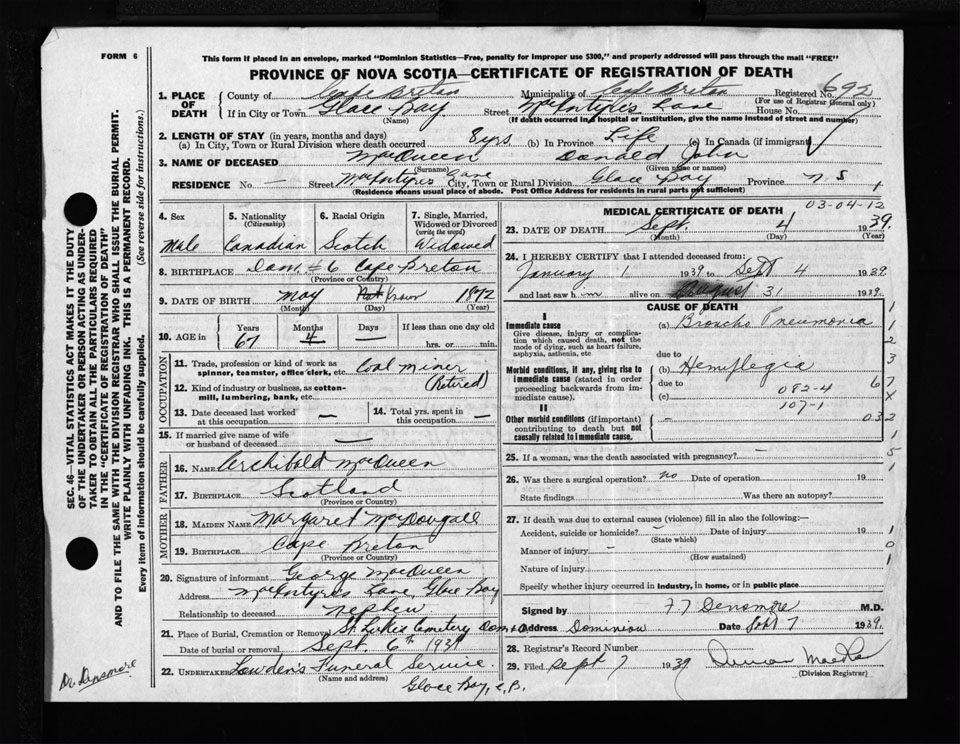 FORM 6
This form if placed in an envelope, marked "Dominion Statistics—Free, penalty for improper use $300," and properly addressed will pass through the mail "FREE"
PROVINCE OF NOVA SCOTIA—CERTIFICATE OF REGISTRATION OF DEATH
1. PLACE OF DEATH County of Cape Breton Municipality of Cape Breton Registered No. 692
(For use of Registrar General only)
If in City or Town Glace Bay Street MacIntyres Lane House No.
(Name) (If death occurred in a hospital or institution, give the name instead of street and number)
2. LENGTH OF STAY (in years, months and days)
(a) In City, Town or Rural Division where death occurred 8 yrs. (b) In Province Life (c) In Canada (if immigrant)
3. NAME OF DECEASED MacQueen Donald John
(Surname) (Given name or names)
RESIDENCE No. — Street MacIntyres Lane City, Town or Rural Division Glace Bay Province N S
(Residence means usual place of abode. Post Office Address for residents in rural parts not sufficient)
4. Sex 5. Nationality 6. Racial Origin 7. Single, Married, Widowed or Divorced
(Citizenship) (write the word)
Male Canadian Scotch Widowed
8. BIRTHPLACE Dom. #6 Cape Breton
(Province or Country)
9. DATE OF BIRTH May Not Known 1872
(Month) (Day) (Year)
10. AGE in Years Months Days If less than one day old
67 4 — hrs. or min.
OCCUPATION
11. Trade, profession or kind of work as spinner, teamster, office clerk, etc. Coal miner
(Retired)
12. Kind of industry or business, as cotton-mill, lumbering, bank, etc.
13. Date deceased last worked at this occupation — 14. Total yrs. spent in this occupation —
15. If married give name of wife or husband of deceased —
FATHER
16. NAME Archibald MacQueen
17. BIRTHPLACE Scotland
(Province or Country)
MOTHER
18. MAIDEN NAME Margaret MacDougall
19. BIRTHPLACE Cape Breton
(Province or Country)
20. Signature of informant George MacQueen
Address MacIntyres Lane, Glace Bay
Relationship to deceased Nephew
21. Place of Burial, Cremation or Removal St Lukes Cemetery Dom
Date of burial or removal Sept. 6th 1939
22. UNDERTAKER Lowden's Funeral Service.
(Name and address)
Glace Bay, C.B.
MEDICAL CERTIFICATE OF DEATH 03-04-12
23. DATE OF DEATH Sept. 4 1939.
(Month) (Day) (Year)
24. I HEREBY CERTIFY that I attended deceased from:
January 1 1939 to Sept 4 1939
and last saw h im alive on August 31 1939.
CAUSE OF DEATH
I
Immediate cause (a) Broncho Pneumonia
Give disease, injury or complication which caused death, not the mode of dying, such as heart failure, asphyxia, asthenia, etc
due to
Morbid conditions, if any, giving rise to immediate cause (stated in order proceeding backwards from immediate cause). (b) Hemiplegia
due to 082-4
(c) 107-1
II
Other morbid conditions (if important) contributing to death but not causally related to immediate cause. —
1
1
2
3
67
X
032
1
5
1
25. If a woman, was the death associated with pregnancy? —
26. Was there a surgical operation? no Date of operation 19
State findings Was there an autopsy?
27. If death was due to external causes (violence) fill in also the following:—
Accident, suicide or homicide? – Date of injury 19
(State which)
Manner of injury –
(How sustained)
Nature of injury
Specify whether injury occurred in industry, in home, or in public place
1
0
1
Signed by F7 Densmore M.D.
Address Dominion Date Sept 7 1939.
28. Registrar's Record Number
29. Filed Sept 7 1939
(Division Registrar)
SEC. 46—VITAL STATISTICS ACT MAKES IT THE DUTY
OF THE UNDERTAKER OR PERSON ACTING AS UNDER-
TAKER TO OBTAIN ALL THE PARTICULARS REQUIRED
IN THE "CERTIFICATE OF REGISTRATION OF DEATH"
AND TO FILE THE SAME WITH THE DIVISION REGISTRAR WHO SHALL ISSUE THE BURIAL PERMIT.
WRITE PLAINLY WITH UNFADING INK. THIS IS A PERMANENT RECORD.
Every item of information should be carefully supplied. (See reverse side for instructions.)
Dr Densmore